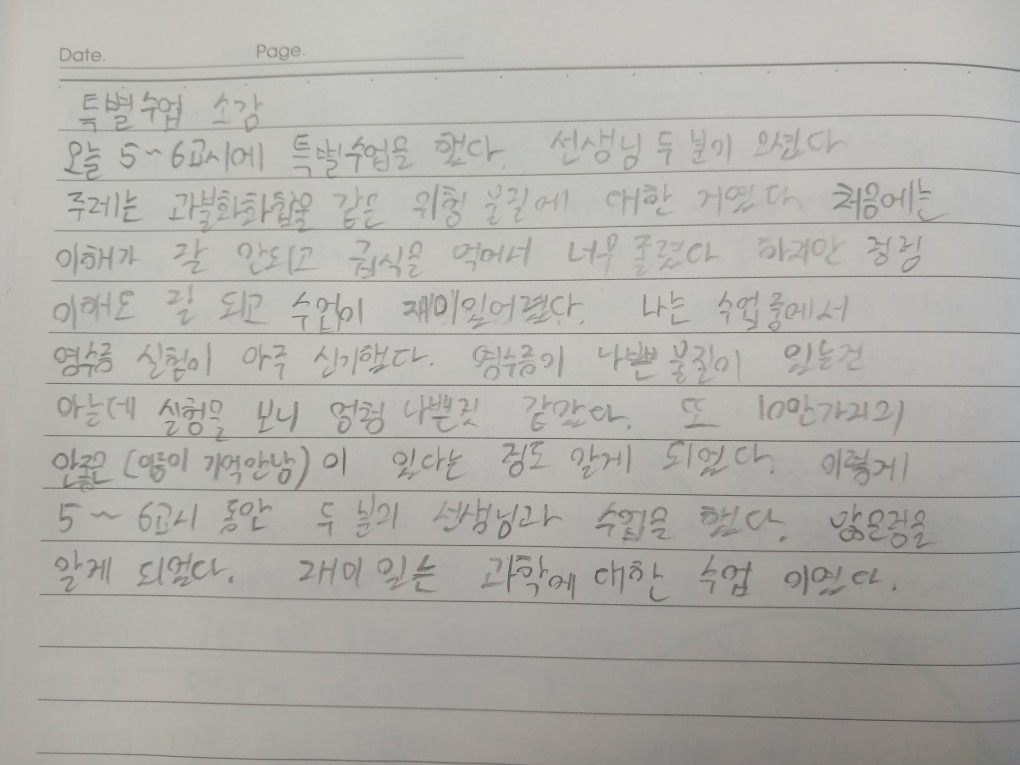 Date. Page.
특별수업 소감
오늘 5~6교시에 특별수업을 했다. 선생님 두분이 오셨다
주제는 과불화화합물 같은 위험 물질에 대한 거였다. 처음에는
이해가 잘 안되고 급식을 먹어서 너무 졸렸다 하지만 점점
이해도 잘 되고 수업이 재미있어졌다. 나는 수업중에서
영수증 실험이 아주 신기했다. 영수증이 나쁜 물질이 있는건
아는데 실험을 보니 엄청 나쁜것 같았다. 또 10만가지의
안좋은 (이름이 기억안남) 이 있다는 점도 알게 되었다. 이렇게
5~6교시 동안 두 분의 선생님과 수업을 했다. 많은점을
알게 되었다. 재미 있는 과학에 대한 수업 이였다.